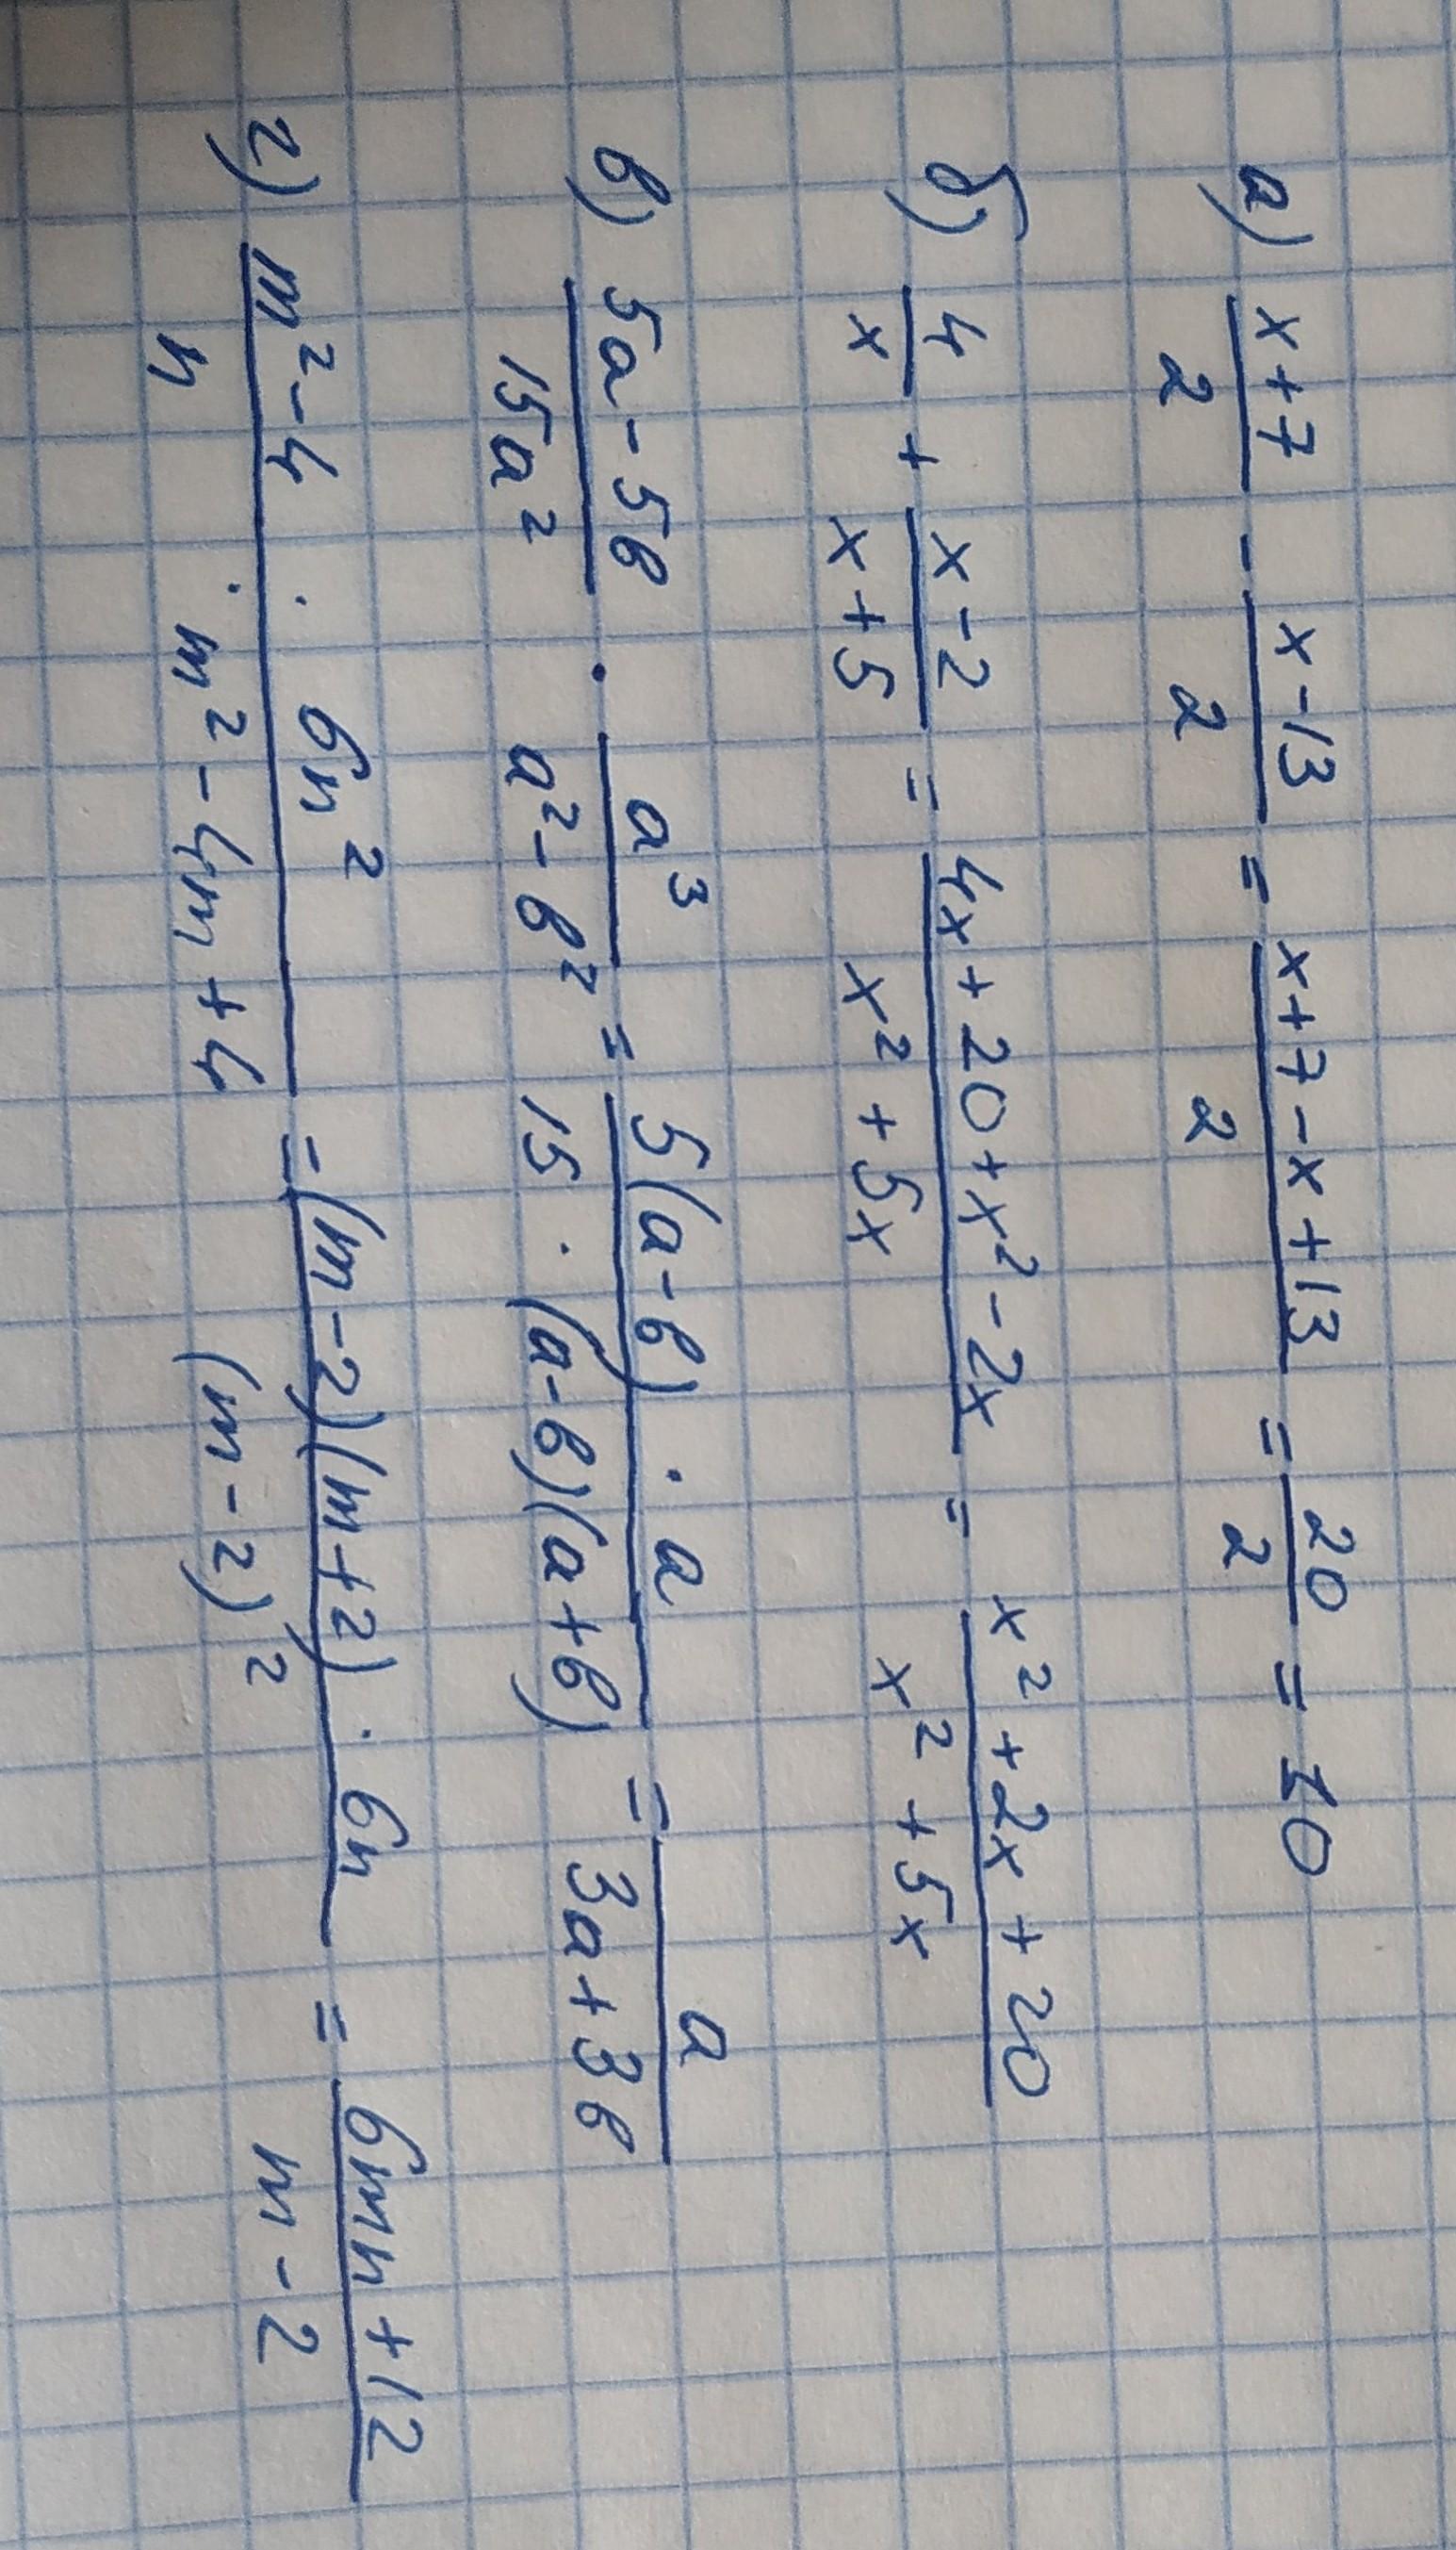 а) (x+7)/2 - (x-13)/2 = (x+7-x+13)/2 = 20/2 = 10
б) 4/x + (x-2)/(x+5) = (4x+20+x²-2x)/(x²+5x) = (x²+2x+20)/(x²+5x)
в) (5a-5b)/(15a²) · a³/(a²-b²) = (5(a-b)·a)/(15·(a-b)(a+b)) = a/(3a+3b)
г) (m²-4)/n · 6n²/(m²-4m+4) = ((m-2)(m+2)·6n)/(m-2)² = (6mn+12)/(m-2)